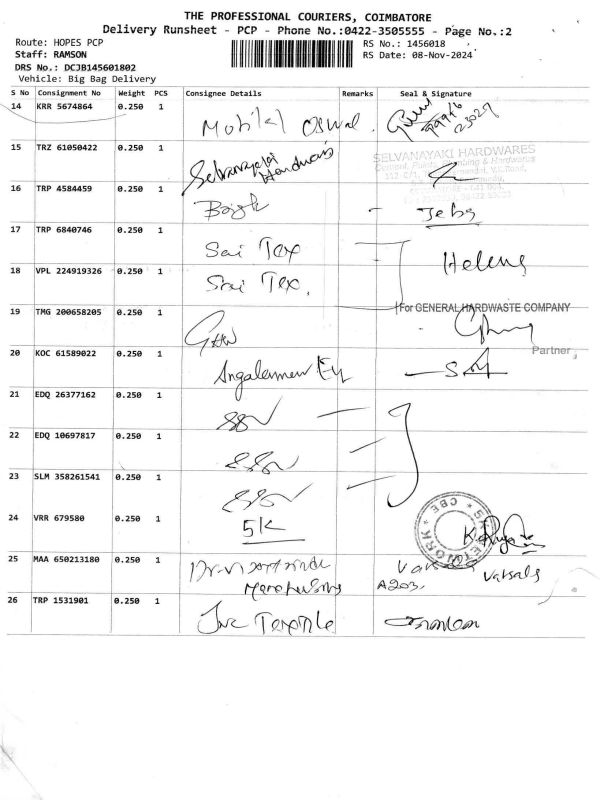 THE PROFESSIONAL COURIERS, COIMBATORE
Delivery Runsheet - PCP - Phone No.:0422-3505555 - Page No.:2
Route: HOPES PCP
RS No.: 1456018
Staff: RAMSON
RS Date: 08-Nov-2024
DRS No.: DCJB145601802
Vehicle: Big Bag Delivery
S No Consignment No Weight PCS Consignee Details Remarks Seal & Signature
14 KRR 5674864 0.250 1 Motilal Oswal.
15 TRZ 61050422 0.250 1 Selvanayaki Hardwares SELVANAYAKI HARDWARES
16 TRP 4584459 0.250 1 - Jebs
17 TRP 6840746 0.250 1 Sai Tex Helens
18 VPL 224919326 0.250 1 Srai Tex.
19 TMG 200658205 0.250 1 GHW For GENERAL HARDWASTE COMPANY
Partner
20 KOC 61589022 0.250 1
21 EDQ 26377162 0.250 1
22 EDQ 10697817 0.250 1
23 SLM 358261541 0.250 1
24 VRR 679580 0.250 1 5K 5K NETWORK * CBE *
25 MAA 650213180 0.250 1 Vatsala
A203.
26 TRP 1531901 0.250 1 Textile